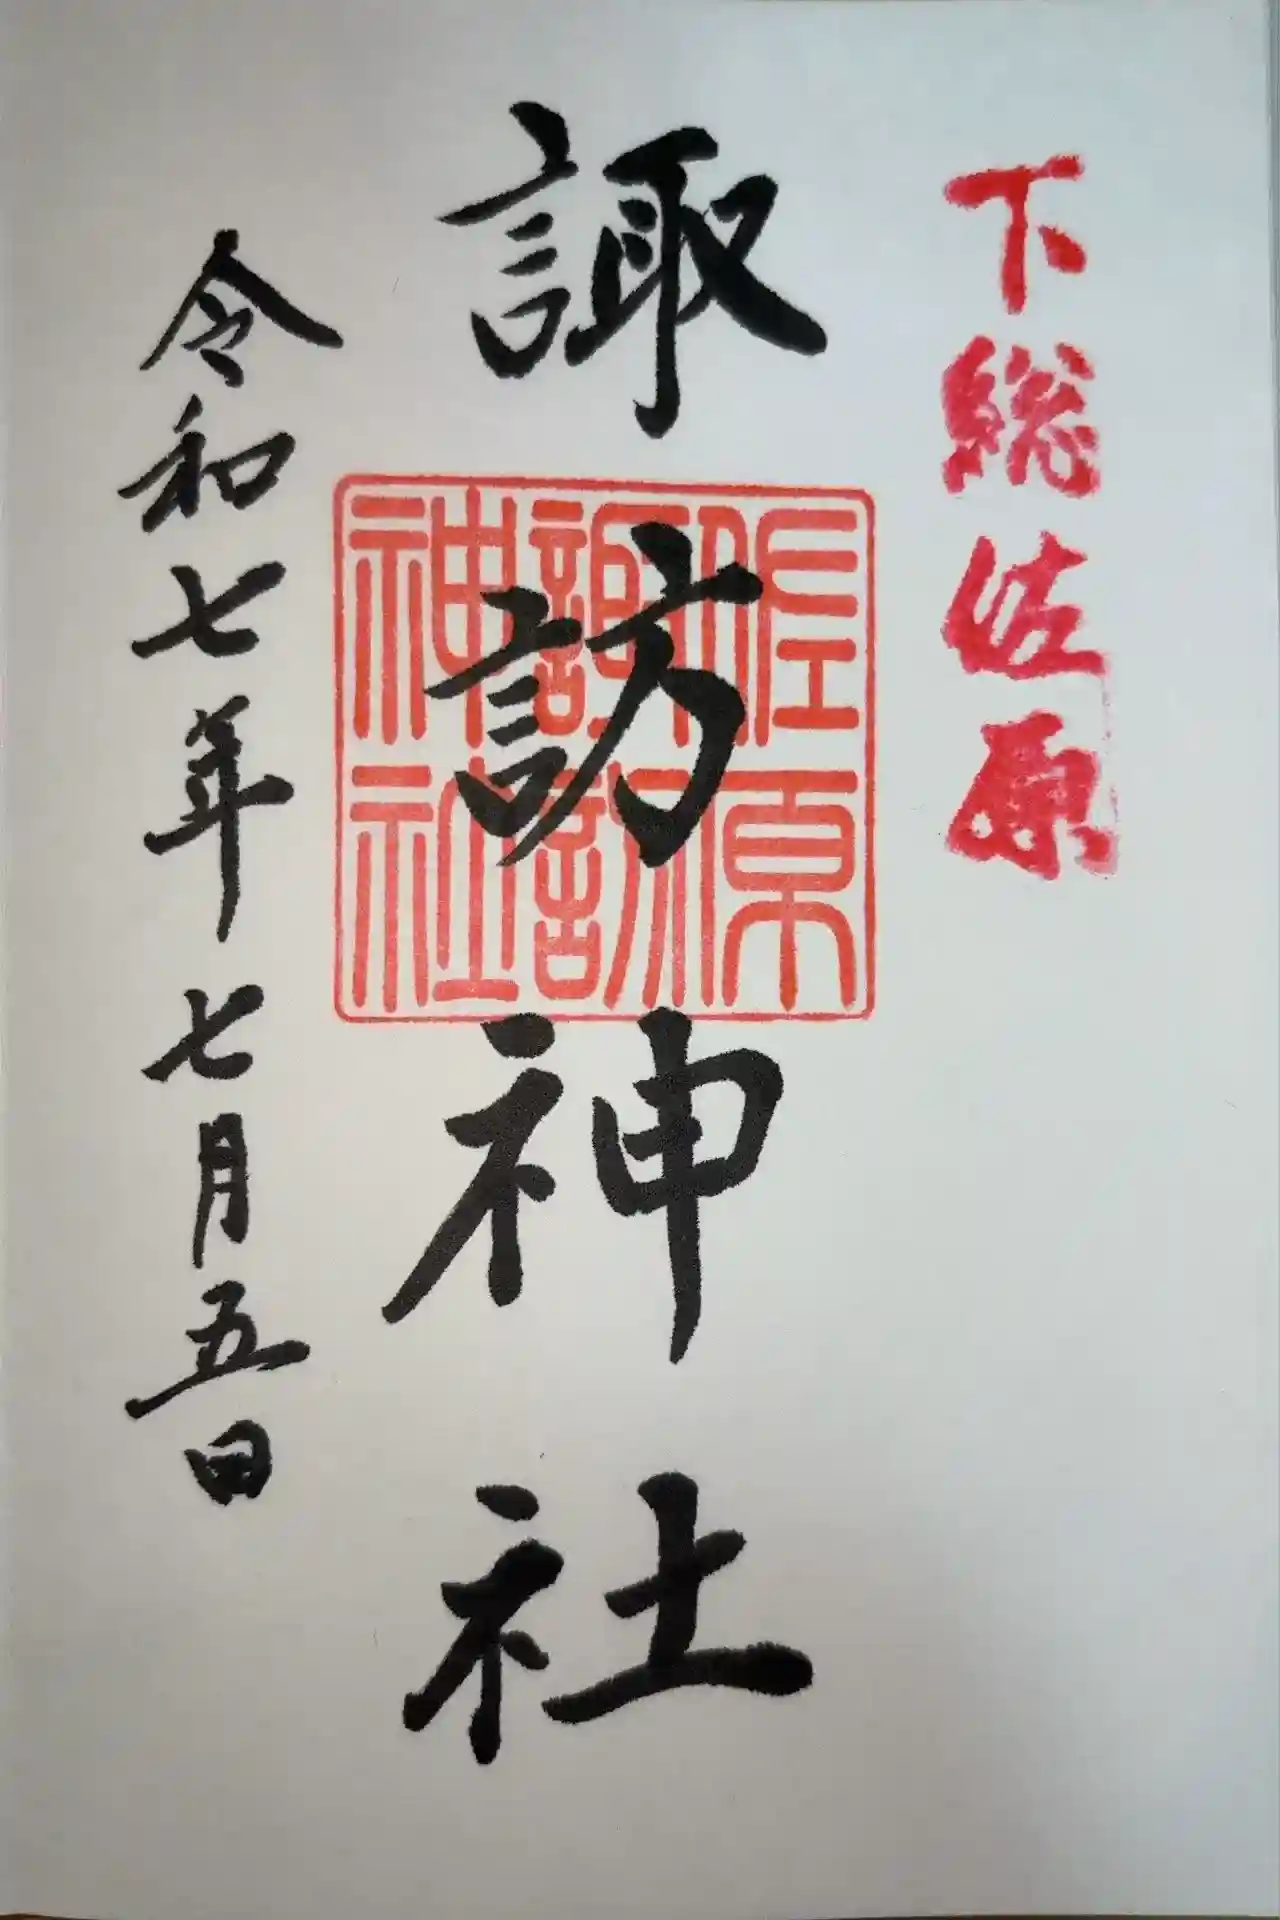 下総佐原
諏訪神社
佐原
諏訪
神社
令和七年七月五日